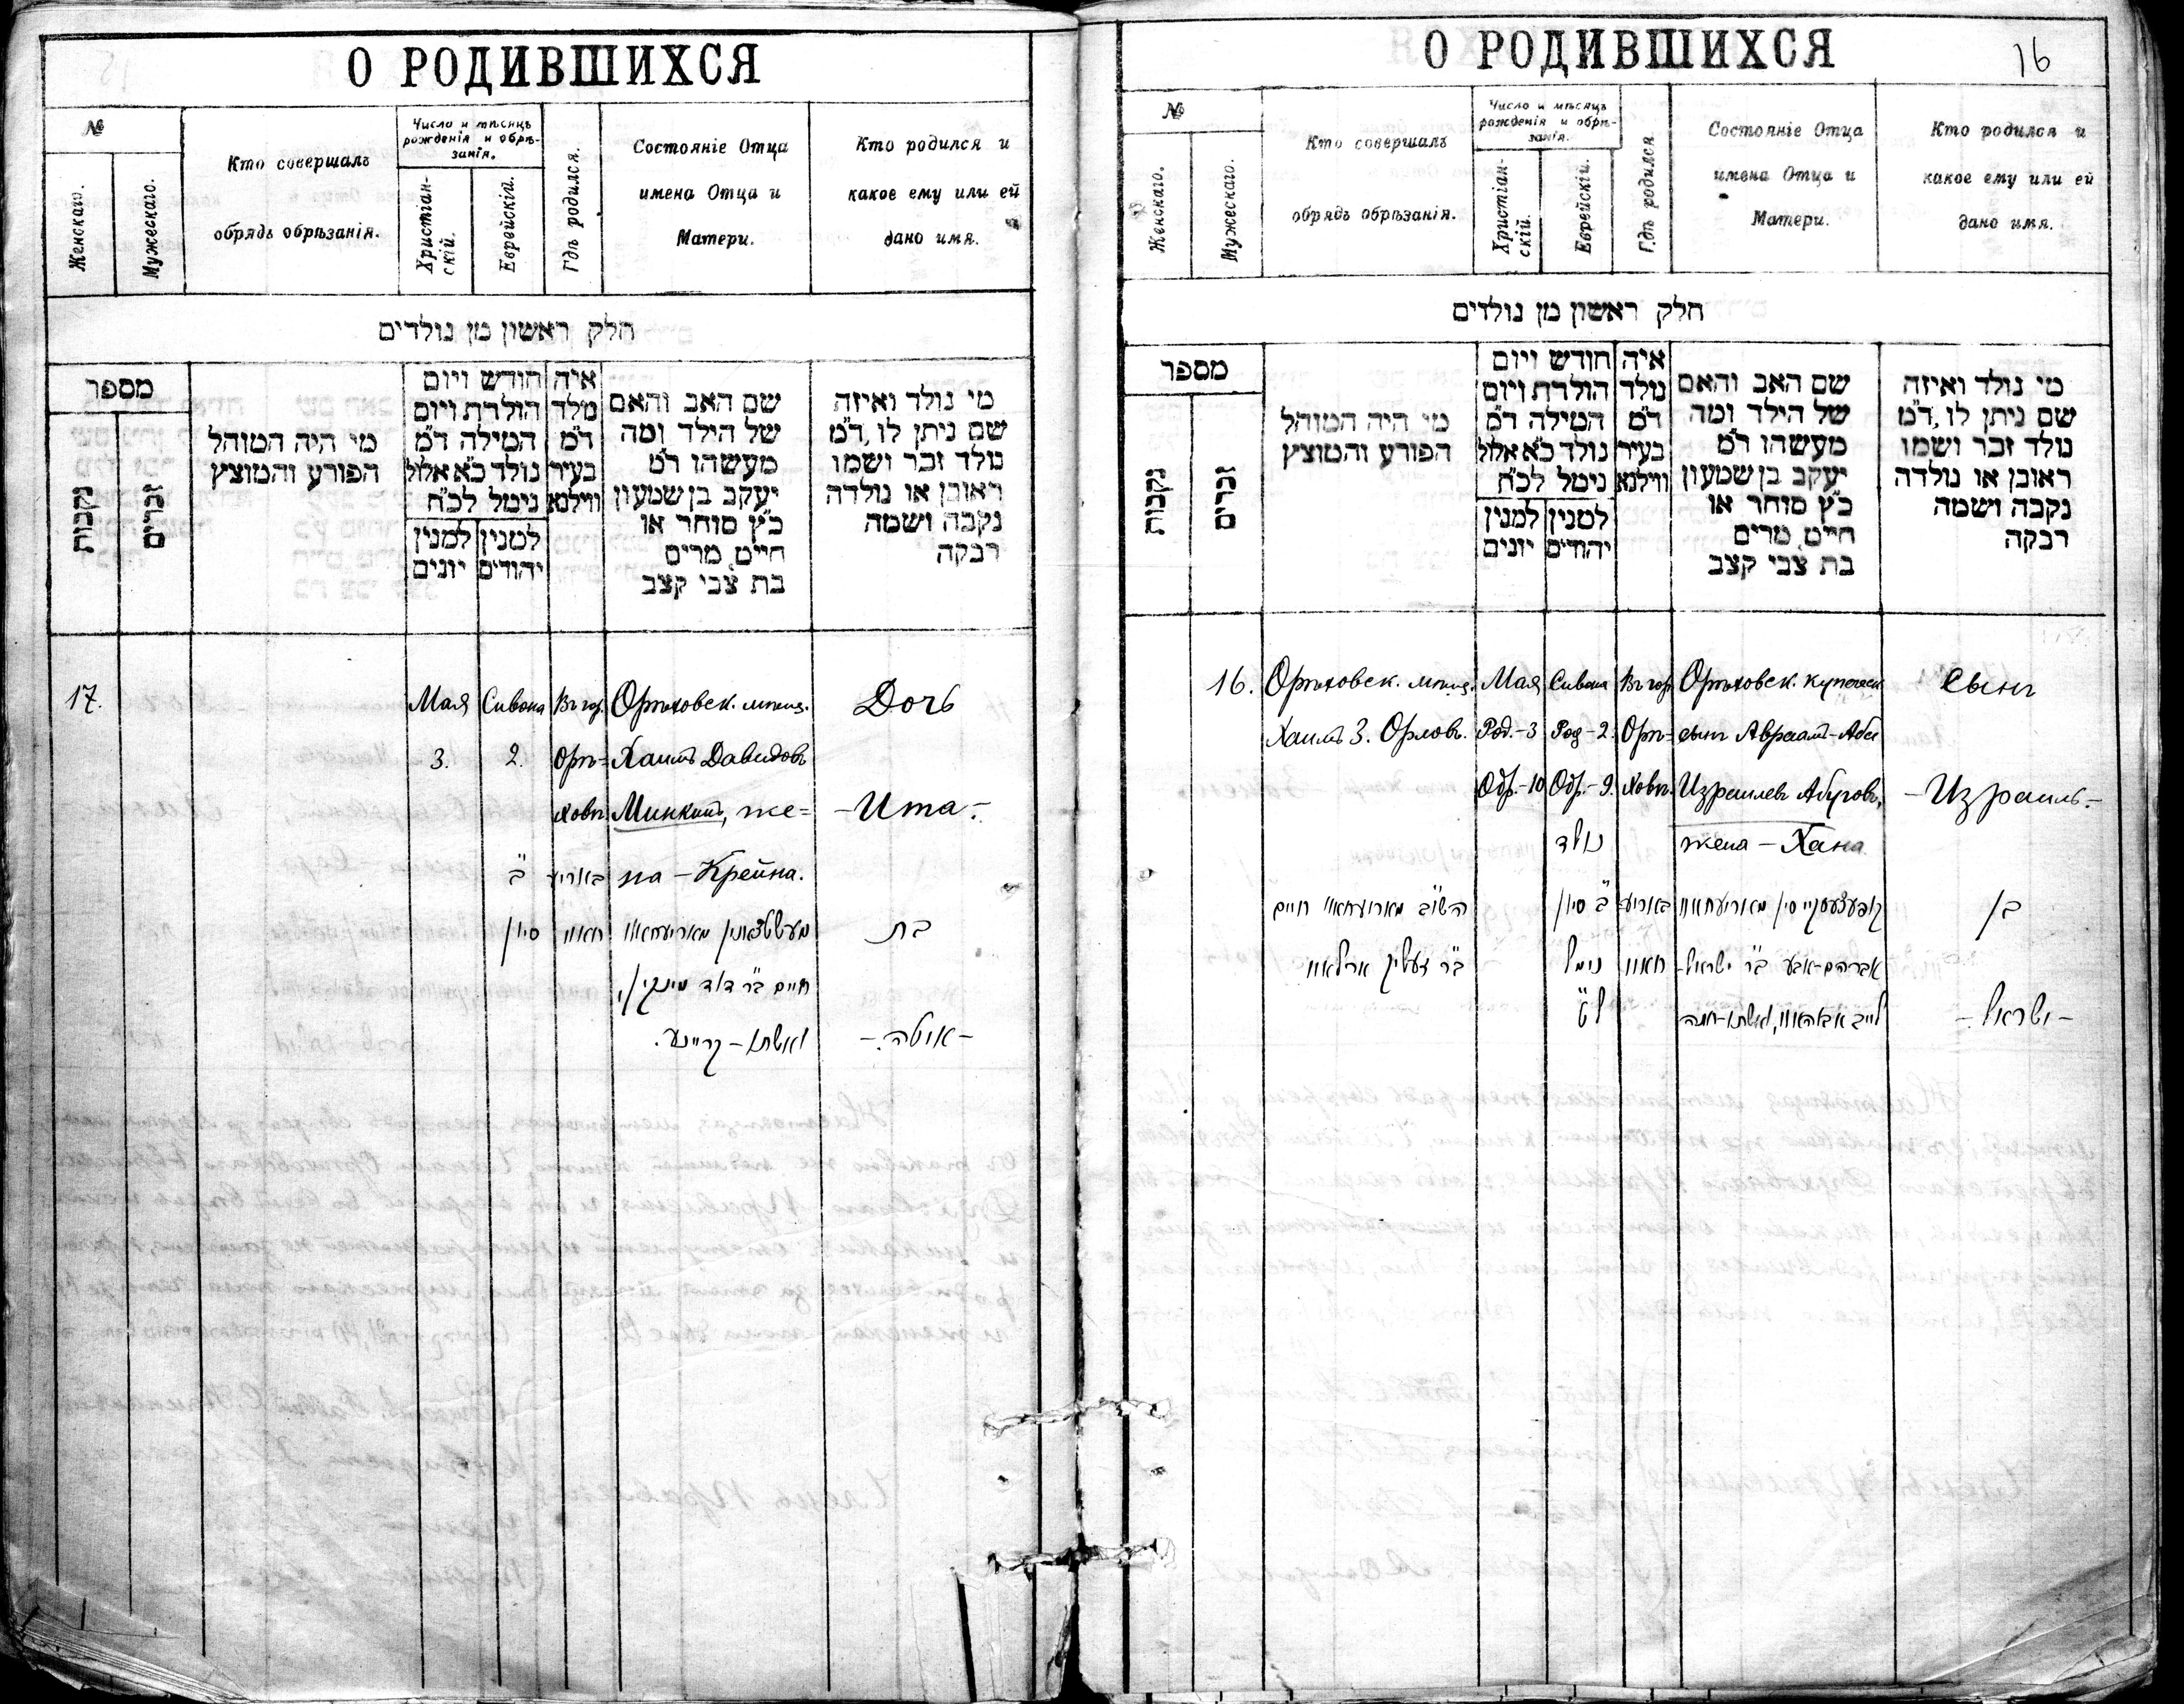 О РОДИВШИХСЯ
№
Женскаго.
Мужескаго.
Кто совершалъ
обрядъ обрѣзанія.
Число и мѣсяцъ
рожденія и обрѣ-
занія.
Христіан-
скій.
Еврейскій.
Гдѣ родился.
Состояніе Отца
имена Отца и
Матери.
Кто родился и
какое ему или ей
дано имя.
חלק ראשון מן נולדים
מספר
נקבות
זכרים
מי היה המוהל
הפורע והמוצץ
חודש ויום
הולדת ויום
המילה ד״מ
נולד כ״א אלול
נימל לכ״ח
למנין
יהודים
למנין
יונים
איה
נולד
ד״מ
בעיר
ווילנא
שם האב והאם
של הילד ומה
מעשהו ד״מ
יעקב בן שמעון
כ״ץ סוחר או
חייט, מרים
בת צבי קצב
מי נולד ואיזה
שם ניתן לו, ד״מ
נולד זכר ושמו
ראובן או נולדה
נקבה ושמה
רבקה
17.
Мая
3.
Сивона
2.
ב״
סיון
Въ гор.
Орѣ=
ховѣ.
Орѣховск. мѣщ.
Хаимъ Давидовъ
Минкинъ, же=
на – Крейна.
חיים ב״ר דוד מינקין,
ואשתו – קריינע.
Дочь
– Ита. –
בת
– איטה. –
О РОДИВШИХСЯ
16
№
Женскаго.
Мужескаго.
Кто совершалъ
обрядъ обрѣзанія.
Число и мѣсяцъ
рожденія и обрѣ-
занія.
Христіан-
скій.
Еврейскій.
Гдѣ родился.
Состояніе Отца
имена Отца и
Матери.
Кто родился и
какое ему или ей
дано имя.
חלק ראשון מן נולדים
מספר
נקבות
זכרים
מי היה המוהל
הפורע והמוצץ
חודש ויום
הולדת ויום
המילה ד״מ
נולד כ״א אלול
נימל לכ״ח
למנין
יהודים
למנין
יונים
איה
נולד
ד״מ
בעיר
ווילנא
שם האב והאם
של הילד ומה
מעשהו ד״מ
יעקב בן שמעון
כ״ץ סוחר או
חייט, מרים
בת צבי קצב
מי נולד ואיזה
שם ניתן לו, ד״מ
נולד זכר ושמו
ראובן או נולדה
נקבה ושמה
רבקה
16.
Орѣховск. мѣщ.
Хаимъ З. Орловъ.
Мая
Род. – 3
Обр. – 10
Сивона
Род – 2.
Обр. – 9.
נולד
ב״ סיון
נימל
ט״
Въ гор.
Орѣ=
ховѣ.
Орѣховск. купеческ
сынъ Авраамъ-Аба
Израилевъ Абуговъ,
жена – Хана
אברהם-אבע ב״ר ישראל-
Сынъ
– Израиль. –
בן
– ישראל. –